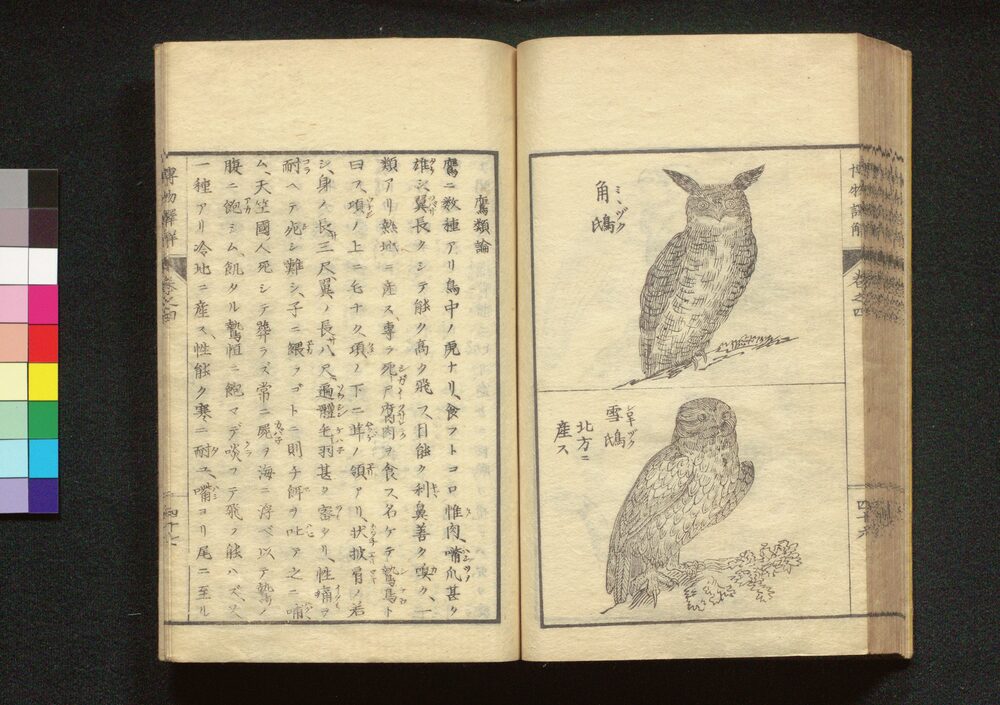 博物語解
卷之四
角鴟
ミヽヅク
雪鴟
北方ニ
産ス
鷹類論
鷹ニ数種アリ鳥中ノ虎ナリ、食フトコロ惟肉、嘴爪甚タ
雄シ翼長クシテ能ク高ク飛フ、目能ク利鼻善ク嗅ク、一
類アリ熱地ニ産ス、専ラ死尸腐肉ヲ食ス名ケテ鷙鳥ト
曰フ、項ノ上ニ毛ナク項ノ下ニ茸ノ領アリ、状披肩ノ若
シ、身ノ長三尺、翼ノ長八尺遍體毛羽甚タ密タリ、性痛ヲ
耐ヘテ死シ難シ、子ニ餵ヲゴトニ則チ餌ヲ吐ア之ニ哺
ム、天竺國人死シテ葬ラズ常ニ屍ヲ海ニ浮ベ以テ鷙ノ
腹ニ飽シム、飢タル鷙恒ニ飽マデ啖フテ飛フ能ハズ、又
一種アリ冷地ニ産ス、性能ク寒ニ耐ユ、嘴ヨリ尾ニ至ル
卷之四